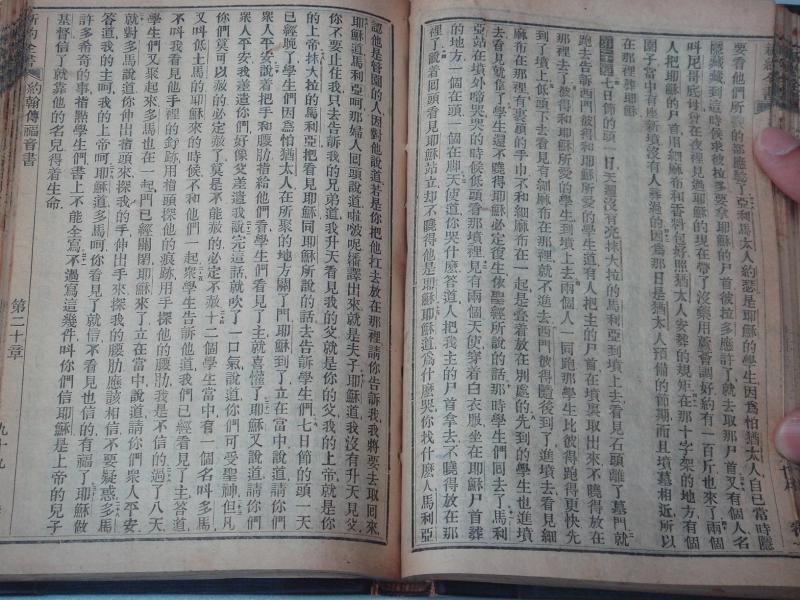 要看他們所
的都應驗了亞利馬太人約瑟是耶穌的學生因爲怕猶太人自己當時隱
隱藏藏到這時候求彼拉多要拿耶穌的尸首彼拉多應許了就去取那尸首又有個人名
叫尼哥底母曾在夜裡見過耶穌的現在帶了沒藥用蘆薈調好約有一百斤也來了兩個
人把耶穌的尸首用細麻布和香料包好照猶太人安葬的規矩在那十字架的地方有個
園子當中有座新墳沒有人葬過的因爲那日是猶太人預備的節期而且墳墓相近所以
在那裡葬耶穌
七日節的頭一日天還沒有亮抹大拉的馬利亞到墳上去看見石頭離了墓門就
跑去告訴西門彼得和耶穌所愛的學生道有人把主的尸首在墳裏取出來不曉得放在
那裡去了彼得和耶穌所愛的學生到墳上去兩個人一同跑那學生比彼得跑得更快先
到了墳上低頭下去看見有細麻布在那裡就不進去西門彼得隨後到了進墳去看見細
麻布在那裡有裹頭的手巾不和細麻布在一起是疊着放在別處的先到的學生也進墳
去看見就信了學生還不曉得耶穌必定復生像聖經所說的話那時學生們回去了馬利
亞站在墳外啼哭哭的時候低頭看那墳裡見有兩個天使穿着白衣服坐在耶穌尸首葬
的地方一個在頭一個在脚天使道你哭什麼答道人把我主的尸首拿去不曉得放在那
裡了說着回頭看見耶穌站立却不曉得他是耶穌耶穌道爲什麼哭你找什麼人馬利亞
認他是管園的人因對他說道若是你把他扛去放在那裡請你告訴我我將要去取回來
耶穌道馬利亞呵那婦人回頭說道啦啵呢繙譯出來就是夫子耶穌道我沒有升天見父
你不要止住我只去告訴我的兄弟道我升天看見我的父就是你的父我的上帝就是你
的上帝抹大拉的馬利亞把看見耶穌同耶穌所說的話去告訴學生們七日節的頭一天
已經晚了學生們因爲怕猶太人在所聚的地方關了門耶穌到了立在當中說道請你們
衆人平安說着把手和腰肋指給他們看學生們看見了主就喜懽了耶穌又說道請你們
衆人平安我差遣你們好像父差遣我說完這話就吹了一口氣說道你們可受聖神但凡
你們莫可以赦的必定赦了莫是不能赦的必定不赦十二個學生當中有一個名叫多馬
又叫低土馬的耶穌來的時候不和他們一起衆學生告訴他道我們已經看見了主答道
不叫我看見他手裡的釘跡用指頭探他的痕跡用手探他的腰肋我是不信的過了八天
學生們又聚起來多馬也在一起門已經關閉耶穌來了立在當中說道請你們衆人平安
就對多馬說道你伸出指頭來探我的手伸出手來探我的腰肋應該相信不要疑惑多馬
答道我的主呵我的上帝呵耶穌道多馬呵你看見了就信不看見也信的有福了耶穌做
許多希奇的事指點學生們書上不能全寫不過寫這幾件叫你們信耶穌是上帝的兒子
基督信了就靠他的名兒得着生命
新約全書 約翰傳福音書
第二十章
九十九